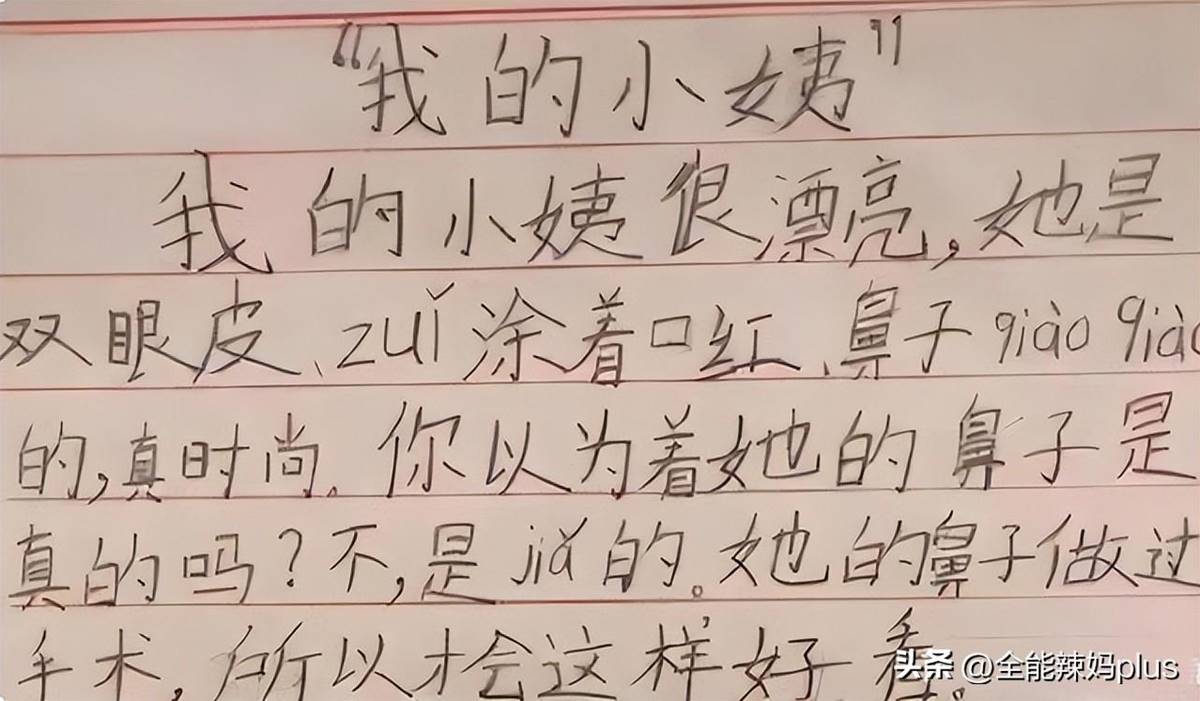 “我的小姨”
我的小姨很漂亮,她是
双眼皮、zuǐ涂着口红、鼻子qiào qiào
的,真时尚。你以为着她的鼻子是
真的吗?不,是jiǎ的。她的鼻子做过
手术,所以才会这样好看。
头条 @全能辣妈plus